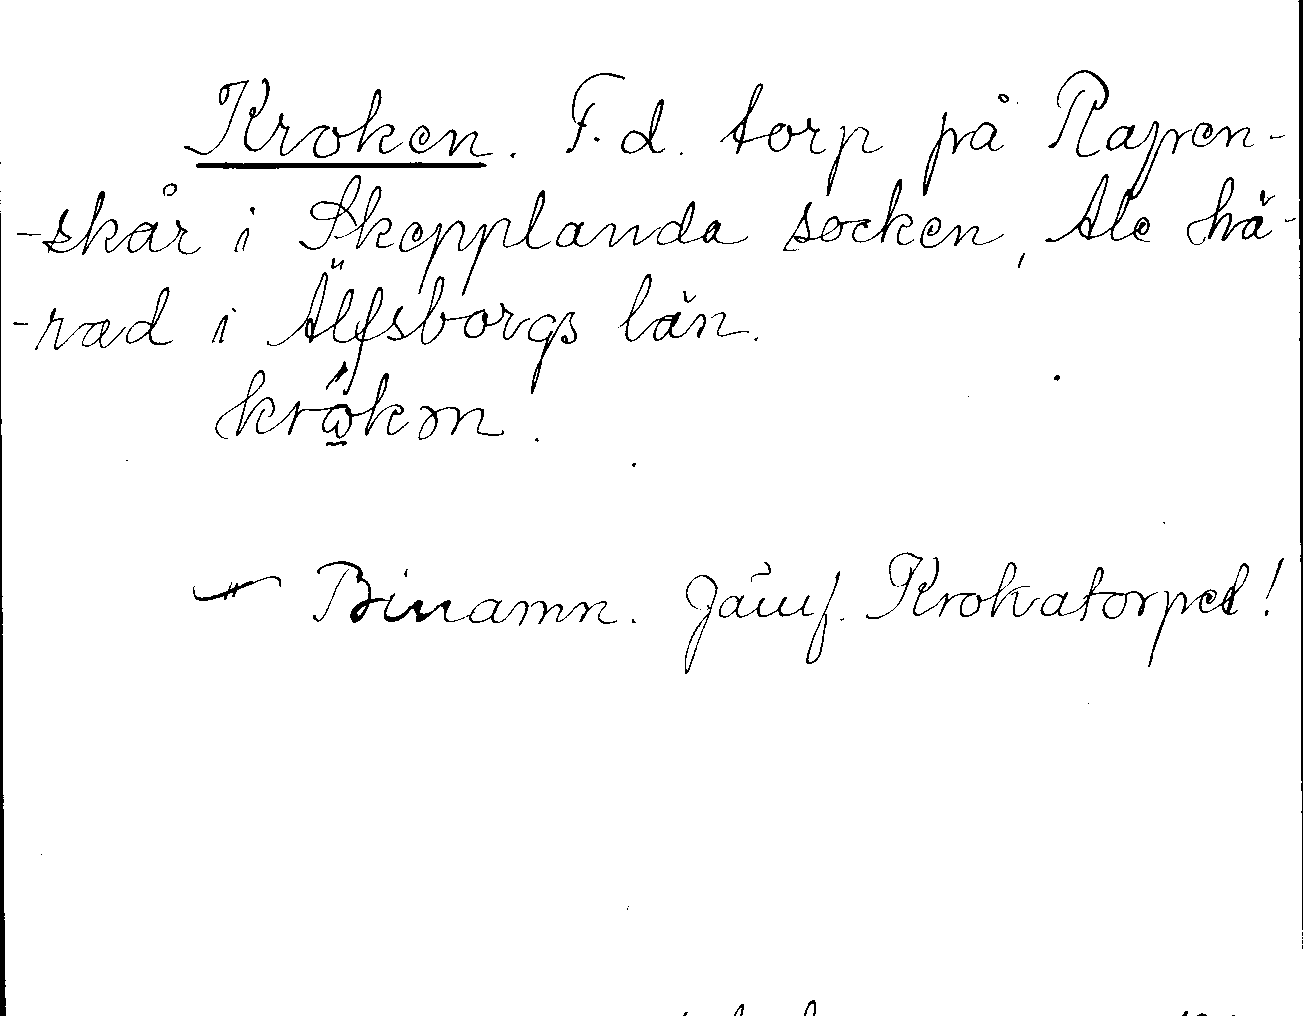 Kroken. F. d. torp på Rapen-
-skår i Skepplanda socken, Ale hä-
-rad i Älfsborgs län.
Binamn. Jämf. Krokatorpet!